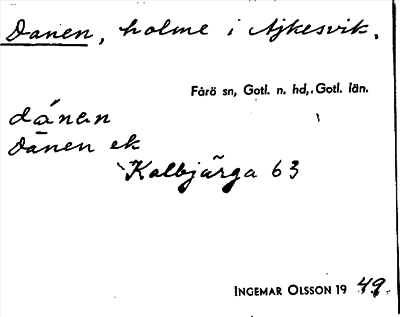 Danen, holme i Ajkesvik.
Fårö sn, Gotl. n. hd, Gotl. län.
dánen
Dānen ek
Kalbjärga 63
INGEMAR OLSSON 19 49.